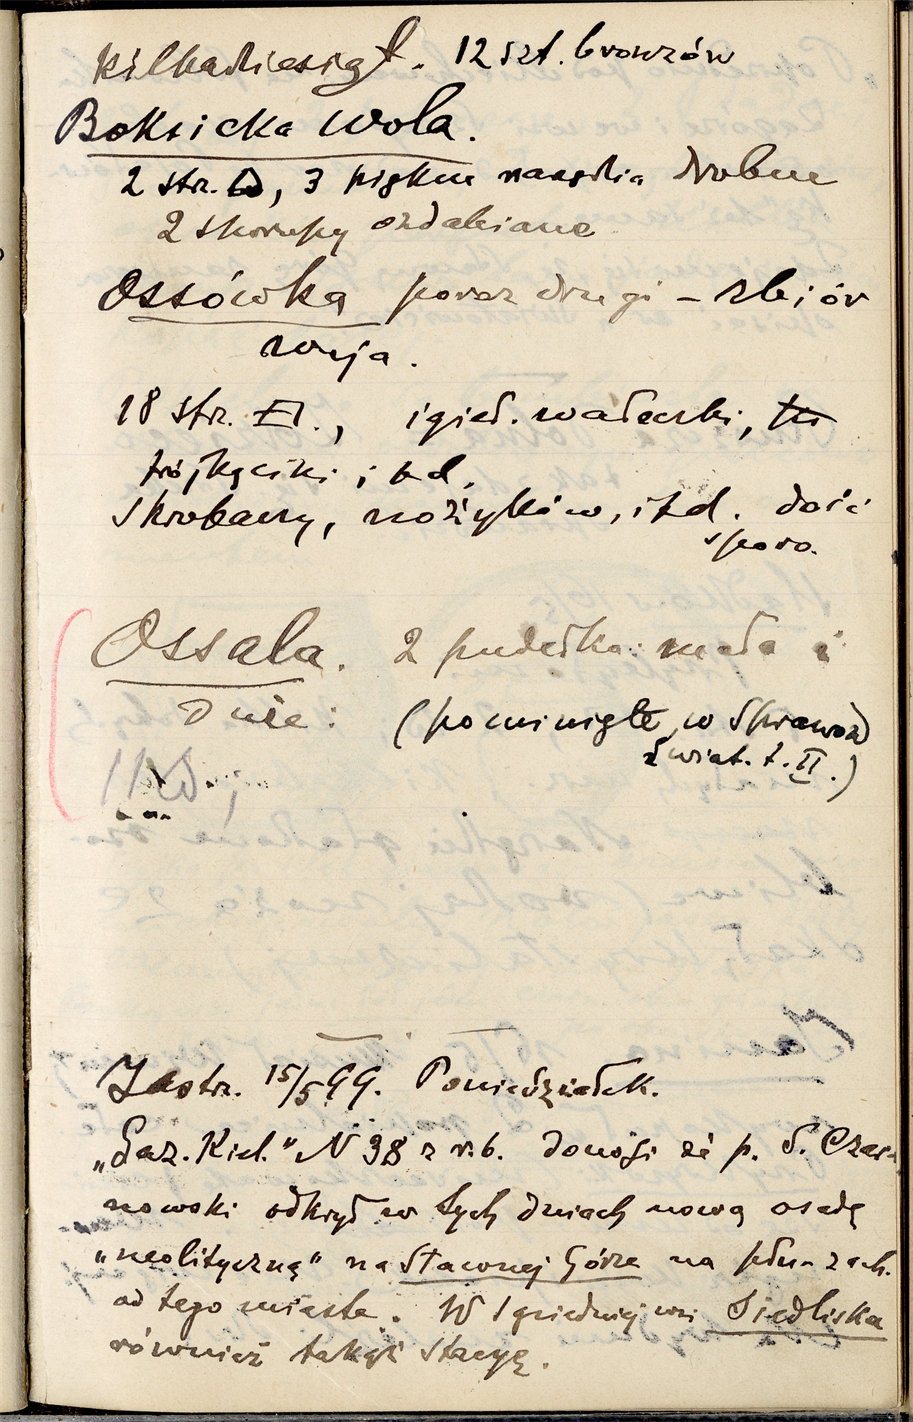 kilkadziesiąt. 12 szt. bronzów
Boksicka Wola.
2 str. , 3 piękne narzędzia drobne
2 skorupy ozdabiane
Ossówka poraz drugi – zbiór
muja.
18 str. , igieł. wałeczki,
trójkąciki i td.
Skrobaczy, nożyków, i t.d. dość
sporo.
Ossala. 2 pudełka: małe i
duże: (pominięte w Sprawozd
Świat. t. II.)
Jastrz. 15/5 99. Poniedziałek.
„Gaz. Kiel.” N 38 z r.b. donosi że p. S. Czar-
nowski odkrył w tych dniach nową osadę
„neolityczną” na Stawnej Górze na płn-zach.
od tego miasta. W sąsiedniej wsi Siedliska
również takąż stacyę.